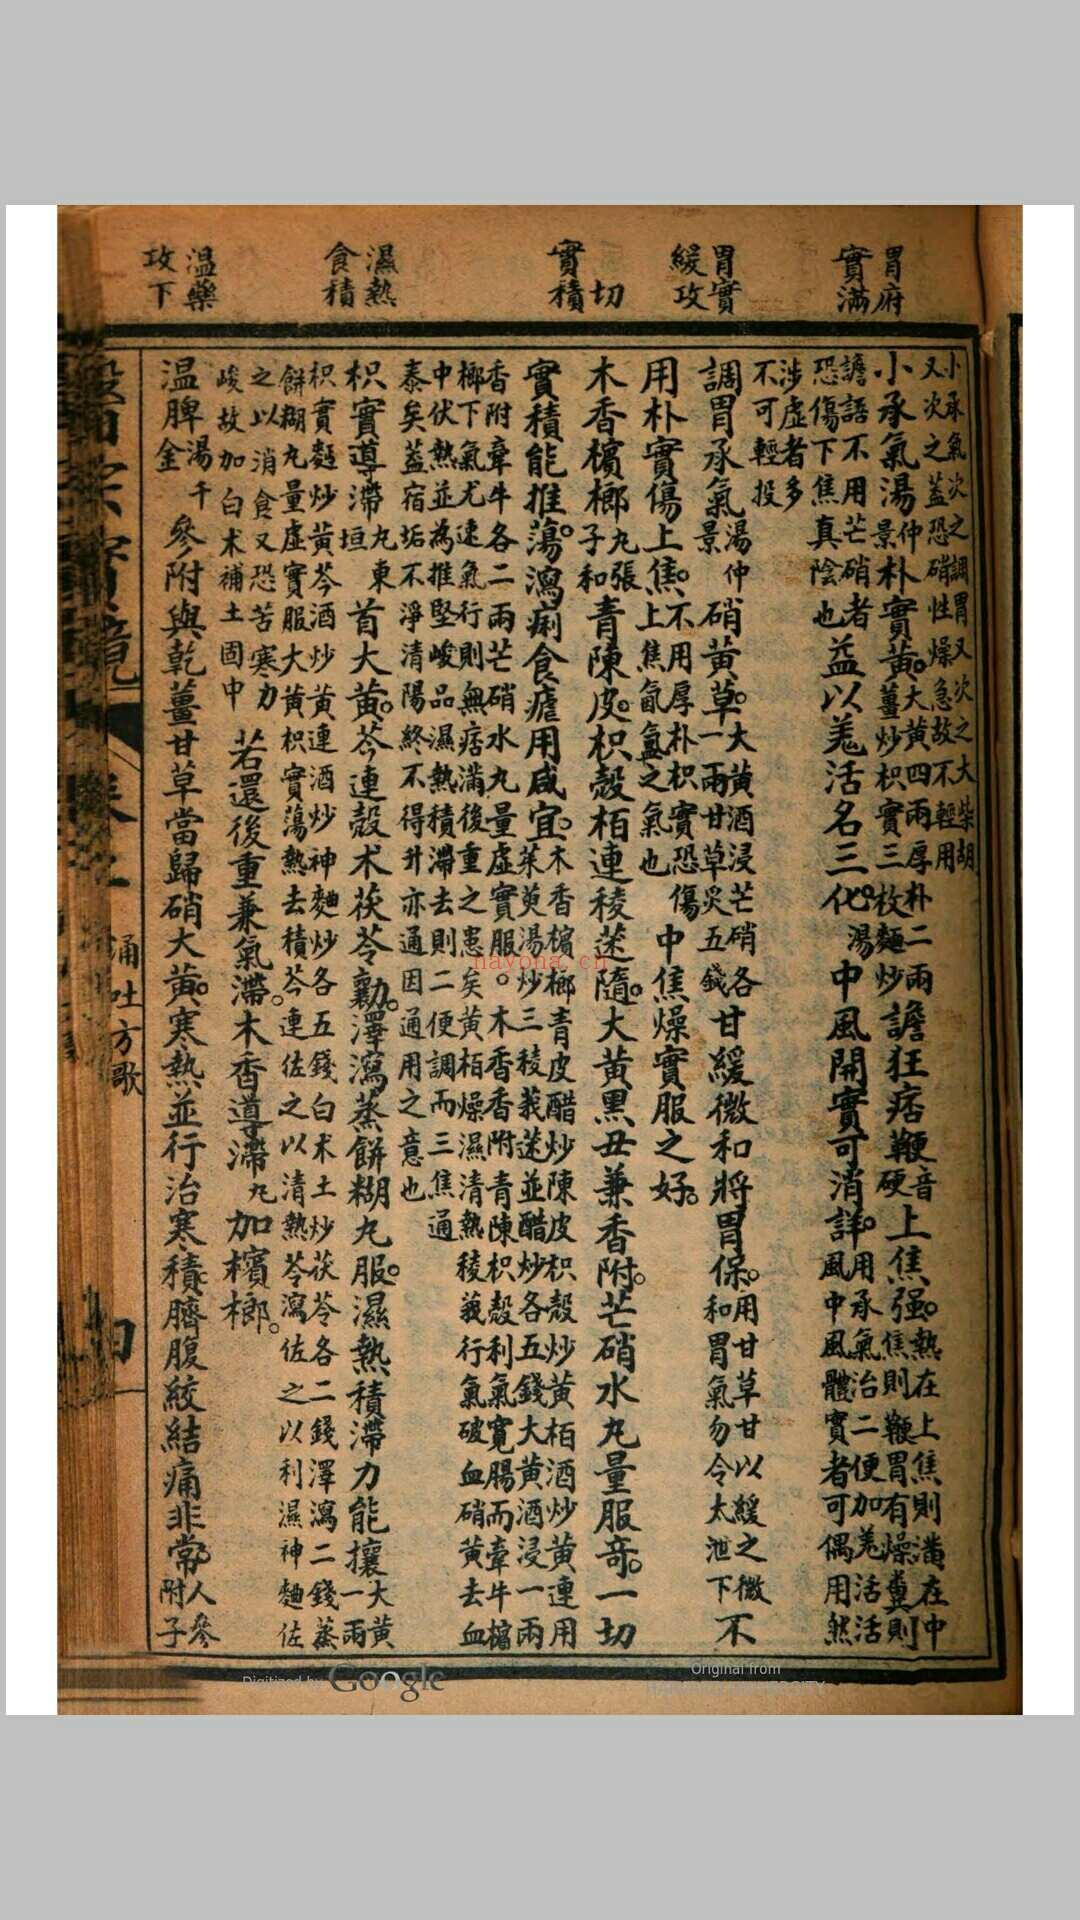 胃府
實滿
胃實
緩攻
一切
實積
濕熱
食積
温藥
攻下
小承氣次之調胃又次之大柴胡
又次之蓋恐硝性燥急故不輕用
小承氣湯仲景朴實黃大黃四兩厚朴二兩薑炒枳實三枚麵炒譫狂痞鞕音硬上焦强熱在上焦則滿在中焦則鞕胃有燥糞則
譫語不用芒硝者恐傷下焦真陰也益以羗活名三化湯中風開實可消詳用承氣治二便加羗活活風中風體實者可偶用然
涉虛者多
不可輕投
調胃承氣湯仲景硝黃草大黃酒浸芒硝各一兩甘草炙五錢甘緩微和將胃保用甘草甘以緩之微和胃氣勿令太泄下不
用朴實傷上焦不用厚朴枳實恐傷上焦氤氳之氣也中焦燥實服之好
木香檳榔丸張子和青陳皮枳殼栢連稜莪隨大黃黑丑兼香附芒硝水丸量服奇一切
實積能推蕩瀉痢食瘧用咸宜木香檳榔青皮醋炒陳皮枳殼炒黃栢酒炒黃連用茱萸湯炒三稜莪蒁並醋炒各五錢大黃酒浸一兩
香附牽牛各二兩芒硝水丸量虛實服。木香香附青陳枳殼利氣寬腸而牽牛檳
榔下氣尤速氣行則無痞滿後重之患矣黃栢燥濕清熱稜莪行氣破血硝黃去血
中伏熱並為推堅峻品濕熱積滯去則二便調而三焦通
泰矣蓋宿垢不淨清陽終不得升亦通因通用之意也
枳實導滯丸東垣首大黃芩連殼术茯苓勷澤瀉蒸餅糊丸服濕熱積滯力能攘大黃一兩
枳實麵炒黃芩酒炒黃連酒炒神麯炒各五錢白术土炒茯苓各二錢澤瀉二錢蒸
餅糊丸量虛實服大黃枳實蕩熱去積芩連佐之以清熱苓瀉佐之以利濕神麯佐
之以消食又恐苦寒力
峻故加白术補土固中
若還後重兼氣滯木香導滯丸加檳榔
温脾湯千金參附與乾薑甘草當歸硝大黃寒熱並行治寒積臍腹絞結痛非常人參附子
涌吐方歌